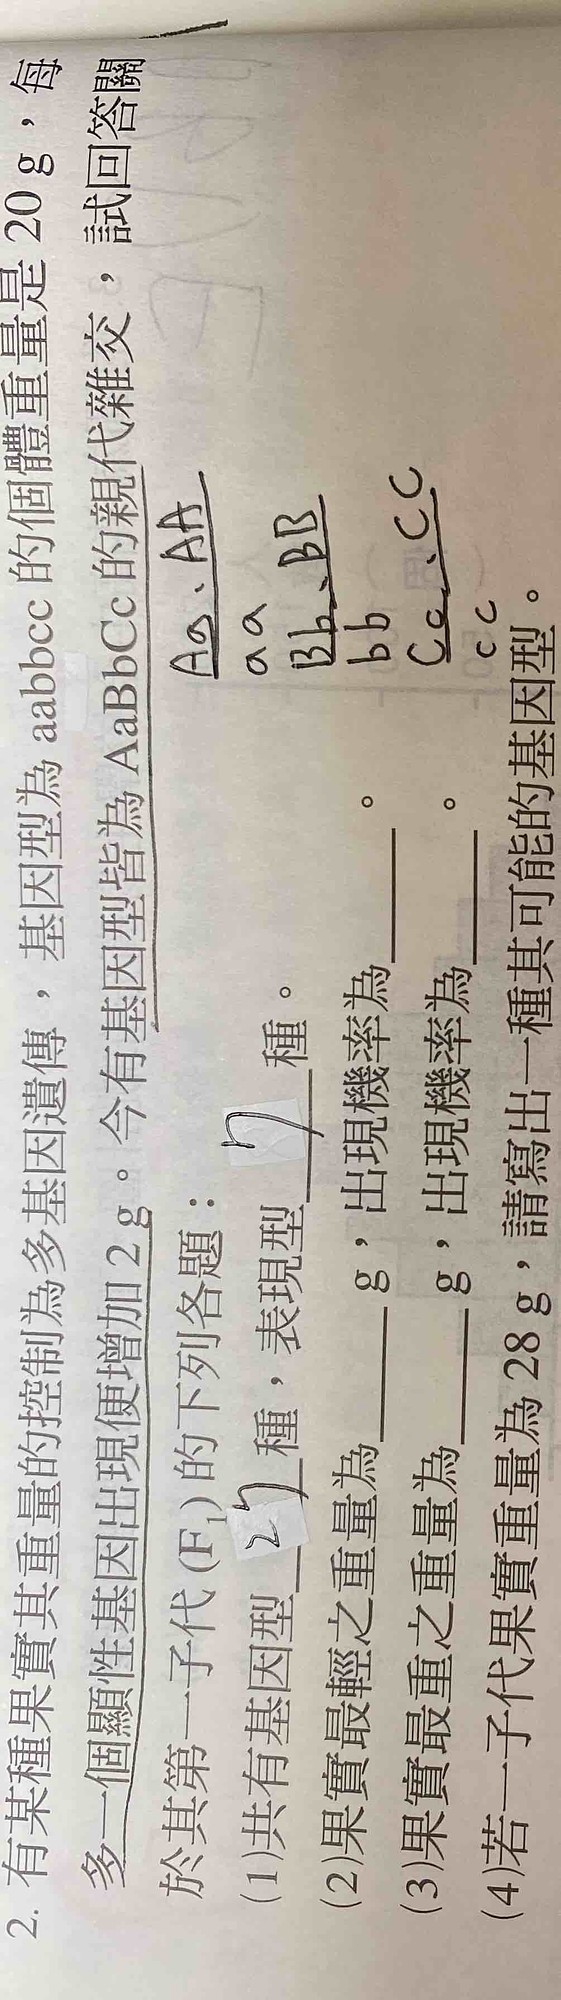 2. 有某種果實其重量的控制為多基因遺傳，基因型為 aabbcc 的個體重量是 20 g，每
多一個顯性基因出現便增加 2 g。今有基因型皆為 AaBbCc 的親代雜交，試回答關
於其第一子代 (F₁) 的下列各題：
Aa、AA
(1)共有基因型 27 種，表現型 7 種。
aa
Bb、BB
(2)果實最輕之重量為____g，出現機率為____。
bb
Cc、CC
(3)果實最重之重量為____g，出現機率為____。
cc
(4)若一子代果實重量為 28 g，請寫出一種其可能的基因型。